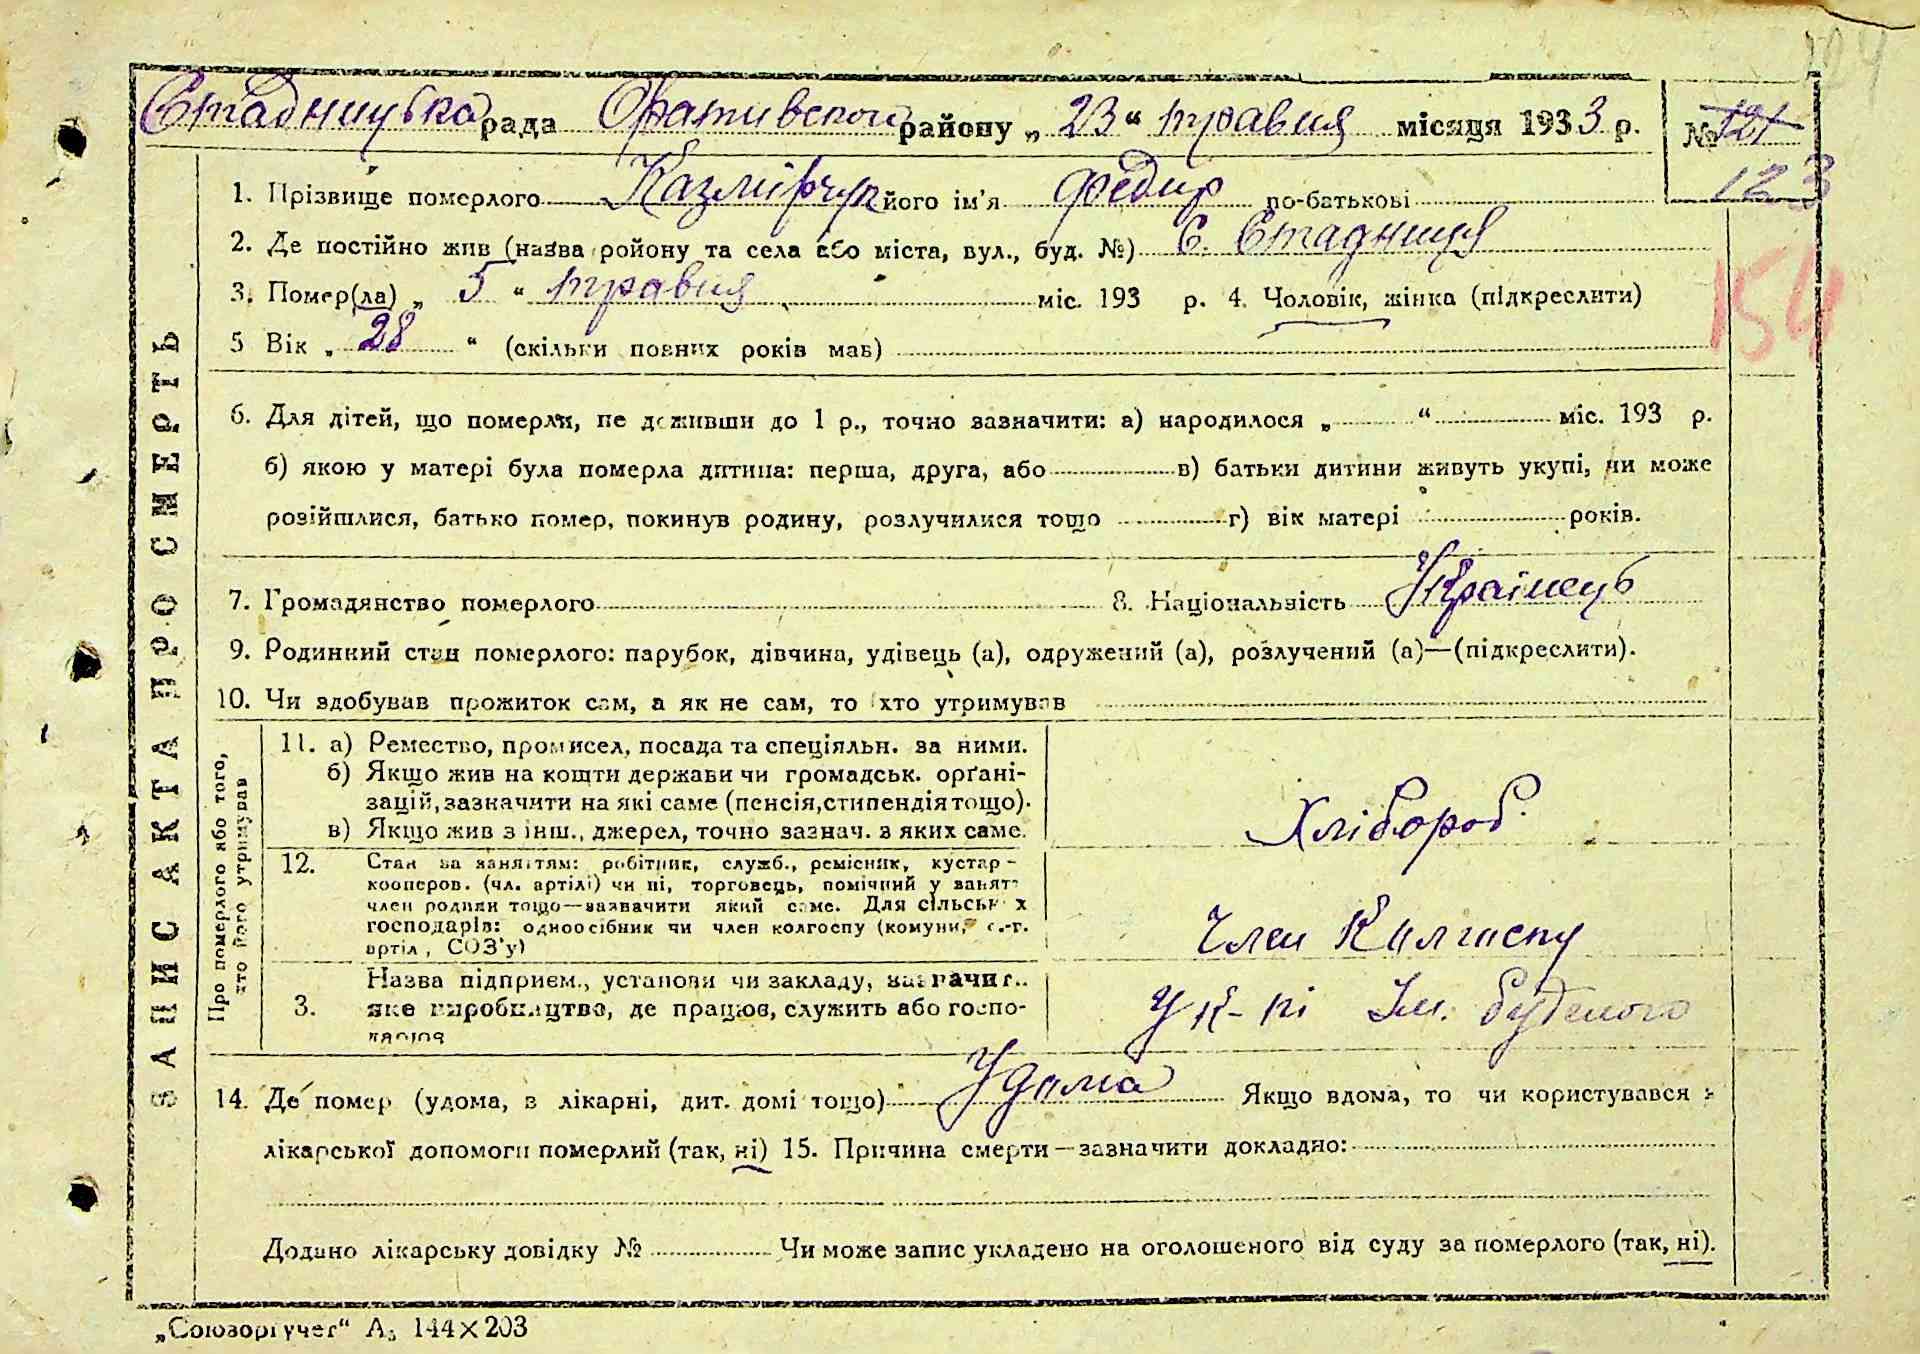 104
Стадницька рада Оратівського району „ 23 “ травня місяця 1933 р. № 121
123
1. Прізвище померлого Казмірчук його ім'я Федир по-батькові
2. Де постійно жив (назва ройону та села або міста, вул., буд. №) С. Стадниця
154
3. Помер(ла) „ 5 “ травня міс. 193 р. 4. Чоловік, жінка (підкреслити)
5 Вік „ 28 “ (скільки повних років мав)
6. Для дітей, що померли, не доживши до 1 р., точно зазначити: а) народилося „ “ міс. 193 р.
б) якою у матері була померла дитина: перша, друга, або в) батьки дитини живуть укупі, чи може
розійшлися, батько помер, покинув родину, розлучилися тощо г) вік матері років.
7. Громадянство померлого 8. Національність Українець
9. Родинний стан померлого: парубок, дівчина, удівець (а), одружений (а), розлучений (а)—(підкреслити).
10. Чи здобував прожиток сам, а як не сам, то хто утримував
ЗАПИС АКТА ПРО СМЕРТЬ
Про померлого або того, хто його утримував
11. а) Ремество, промисел, посада та спеціяльн. за ними.
б) Якщо жив на кошти держави чи громадськ. орґані-
зацій, зазначити на які саме (пенсія, стипендія тощо).
в) Якщо жив з інш., джерел, точно зазнач. з яких саме.
Хлібороб.
12. Стан за заняттям: робітник, служб., ремісник, кустар-
кооперов. (чл. артілі) чи ні, торговець, помічний у занят.
член родини тощо—зазначити який саме. Для сільськ х
господарів: одноосібник чи член колгоспу (комуни, с.-г.
артіл, СОЗ'у)
Член Колгоспу
Назва підприєм., установи чи закладу, зазначит..
3. яке виробництво, де працює, служить або госпо-
дарює
У к-пі Ім. Будьоного
14. Де помер (удома, в лікарні, дит. домі тощо) Удома Якщо вдома, то чи користувався з
лікарської допомоги померлий (так, ні) 15. Причина смерти—зазначити докладно:
Додано лікарську довідку № Чи може запис укладено на оголошеного від суду за померлого (так, ні).
„Союзоргучет“ А₅ 144×203